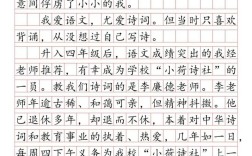 意间俘虏了小小的我。
我爱语文，尤爱诗词。但当时只喜欢
背诵，从没想过自己写诗。
升入四年级后，语文成绩突出的我经
老师推荐，有幸成为学校“小荷诗社”的
一员。教我们诗词的是李廉德老师。李老
师年逾古稀、和蔼可亲，但精神抖擞。他
已退休多年，却退而不休，本着对中华诗
词和教育事业的执着、热爱，几年如一日，
每周四下午义务为我校“小荷诗社”的